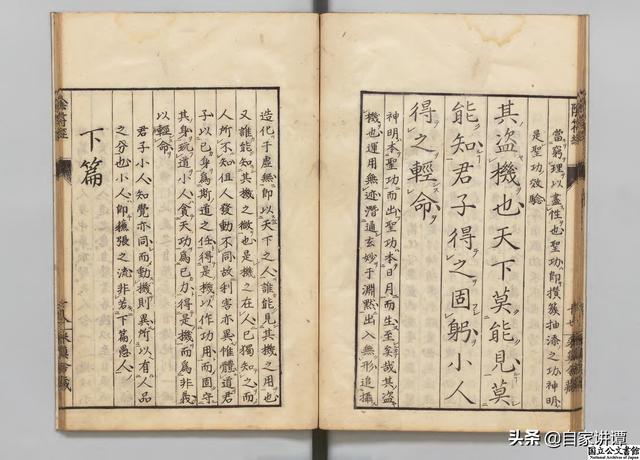 陰符經
當窮理以盡性也聖功即攢簇抽添之功神明
是聖功效驗
其盜機也天下莫能見莫
能知君子得之固躬小人
得之輕命
神明本聖功而出聖功本日月而生至哉其盜
機也運用無迹潛通玄妙于淵默出入無形追攝
造化于虛無即以天下之人誰能見其機之用也
又誰能知其機之微也是機之在人已獨知之而
人所不知但人發動不同故利害亦異惟體道君
子以己身為斯道之任得是機以作功用而固守
其身玩道小人貪天功為己力得是機而為非義
以輕命
君子小人知覺亦同而動機則異所以有人品
之分也小人即縱張之流非若下篇愚人
下篇
陰符經
头条 @自家讲谭
国立公文書館
National Archives of Japan